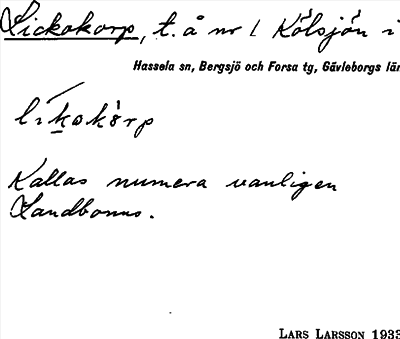 Lickokorp, t. å nr 1 Kölsjön i
Hassela sn, Bergsjö och Forsa tg, Gävleborgs län
Kallas numera vanligen
LARS LARSSON 1933